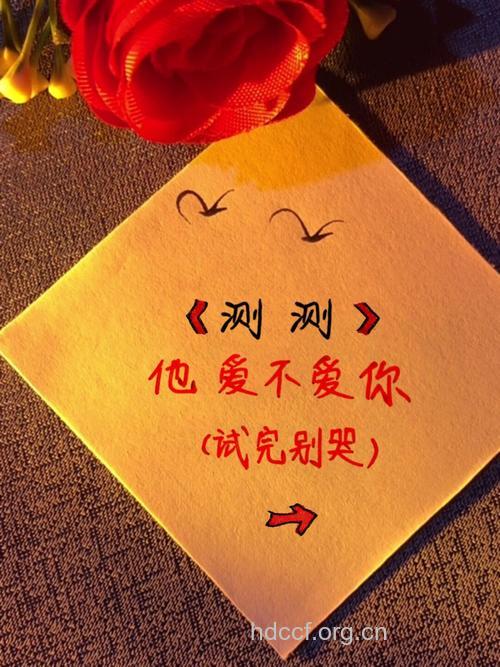 《测 测》
他爱不爱你
(试完别哭)
hdccf.org.cn